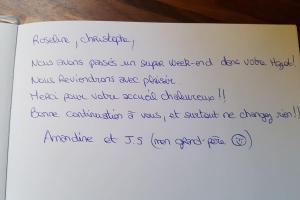 Roseline, christophe,
Nous avons passés un super week-end dans votre Hazot!
Nous Reviendrons avec plaisir
Merci pour votre accueil chaleureux!!
Bonne continuation à vous, et surtout ne changez rien!!
Amandine et J.S (mon grand-père ☺)